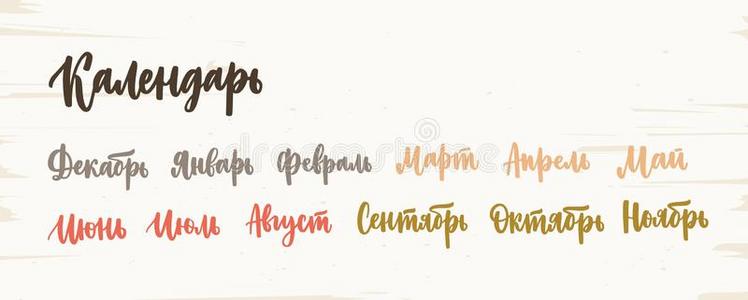 Календарь
Декабрь Январь Февраль Март Апрель Май
Июнь Июль Август Сентябрь Октябрь Ноябрь